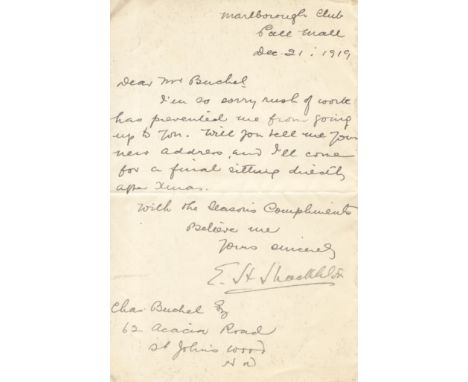 Marlborough Club
Pall Mall
Dec 21: 1919
Dear Mr Buchel
I'm so sorry rush of work
has prevented me from going
up to you. Will you tell me your
new address, and I'll come
for a final sitting directly
after Xmas.
With the Season's Compliments
Believe me
Yours sincerely
E. H. Shackleton
Chas Buchel Esq
62 Acacia Road
St John's Wood
N W